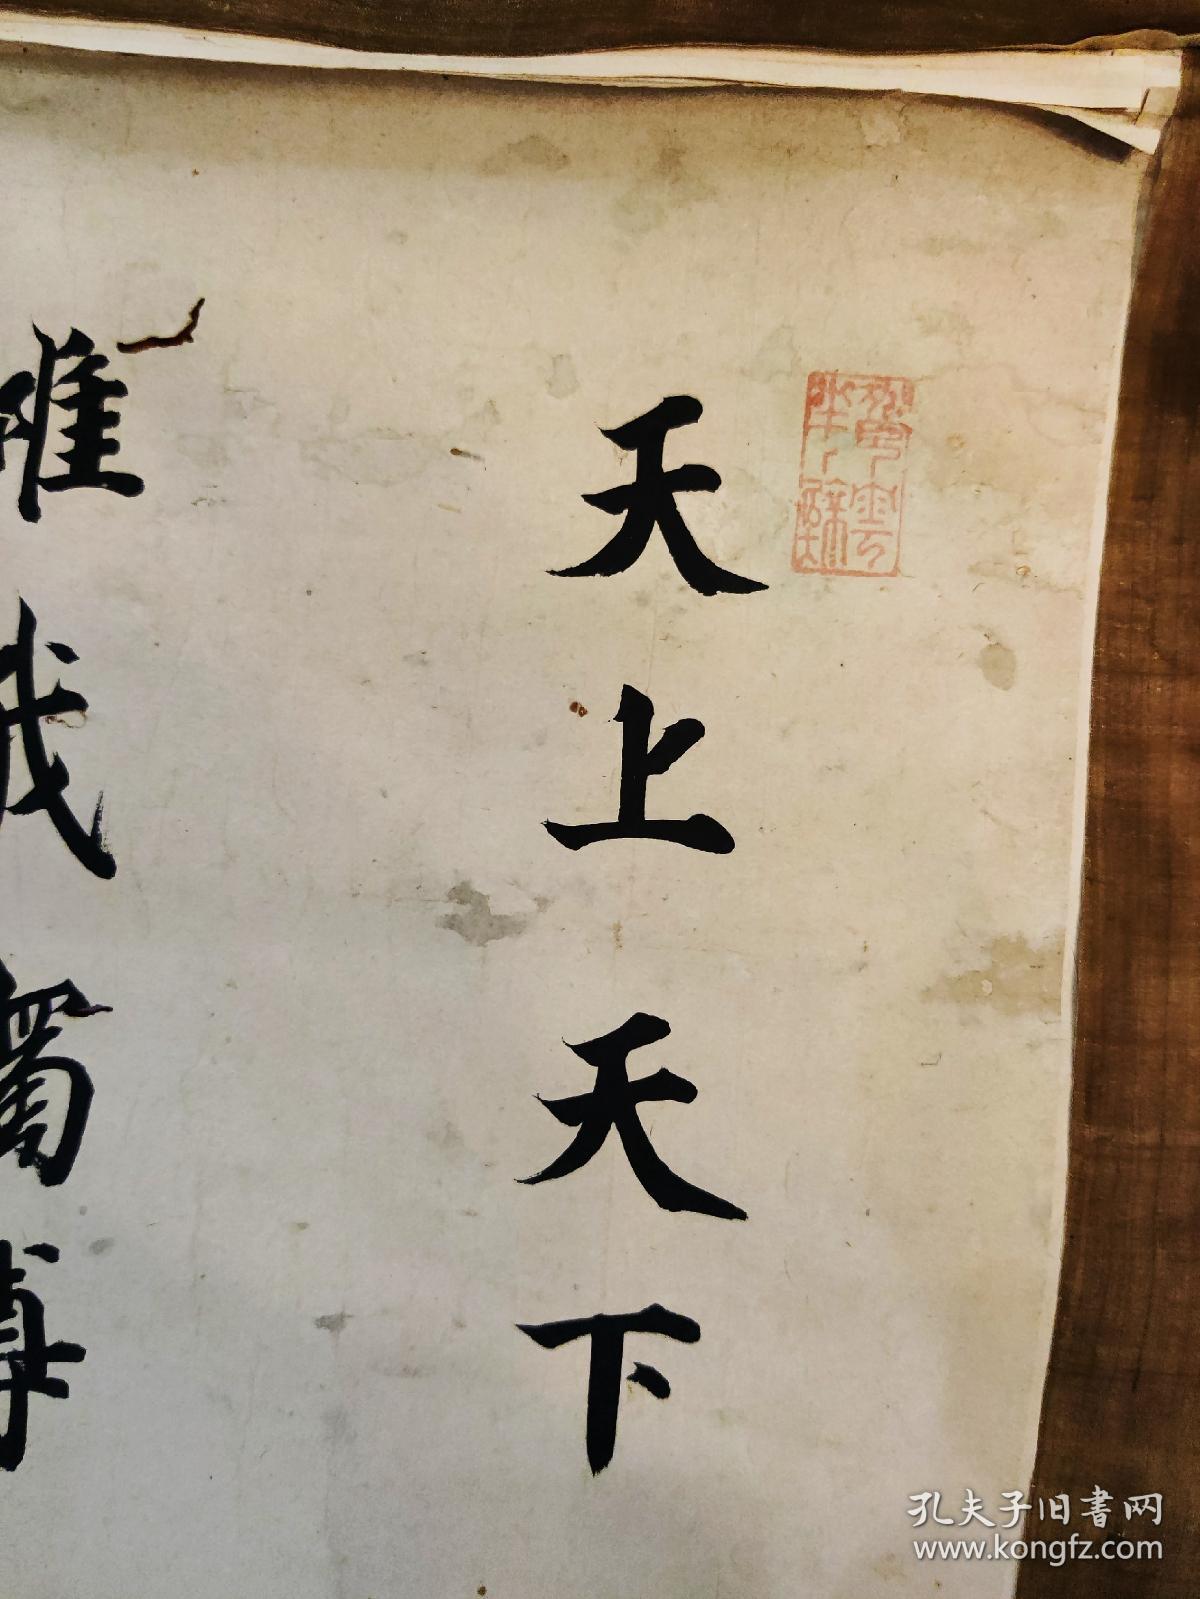 天上天下
唯我獨尊
孔夫子旧書网
www.kongfz.com